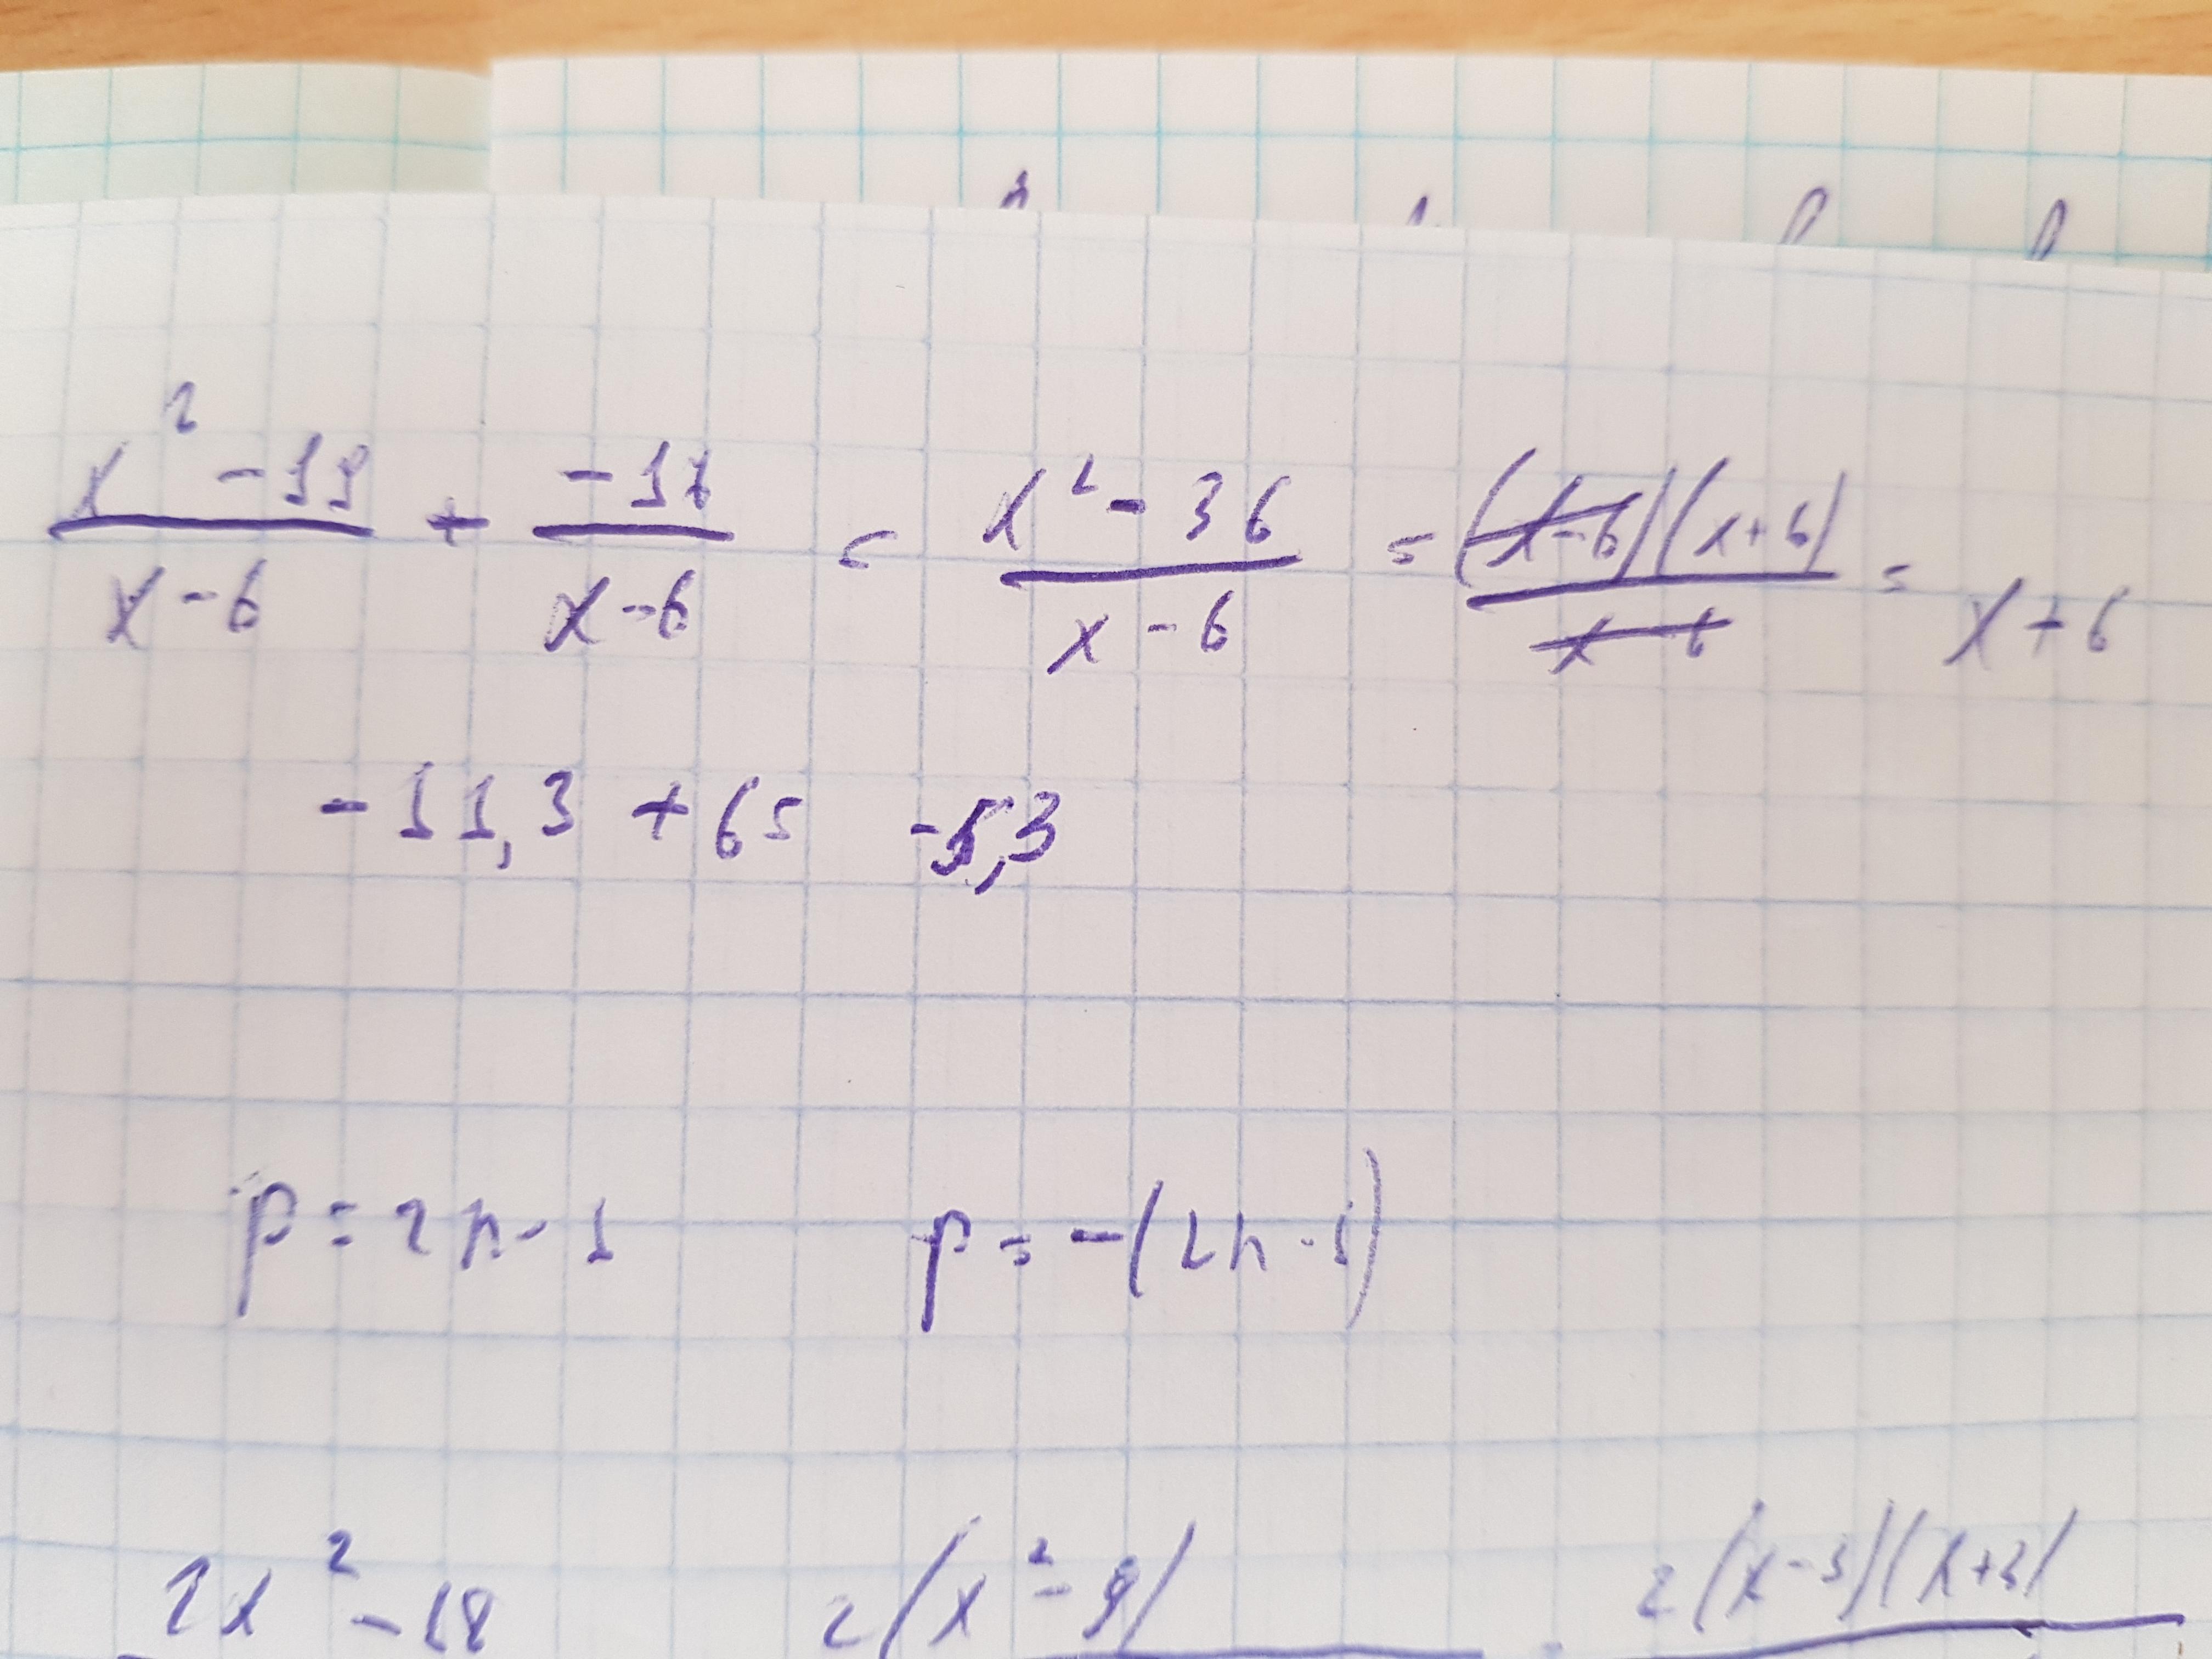 x² - 19 / x - 6 + -17 / x - 6 = x² - 36 / x - 6 = (x - 6)(x + 6) / x - 6 = x + 6
- 11,3 + 6 = -5,3
p = 2n - 1 p = -(2n - 1)
2x² - 18 2(x² - 9) 2(x - 3)(x + 3)